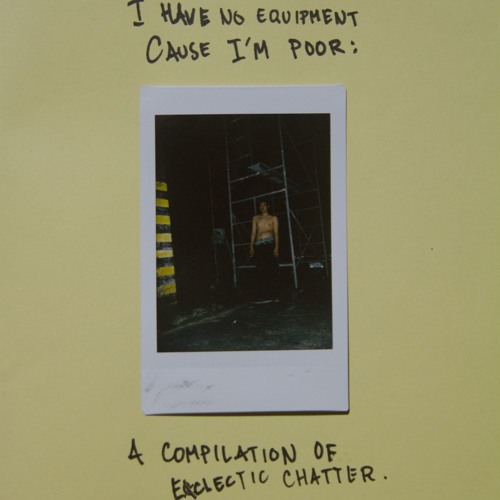 I HAVE NO EQUIPMENT
CAUSE I'M POOR:
A COMPILATION OF
ECLECTIC CHATTER.